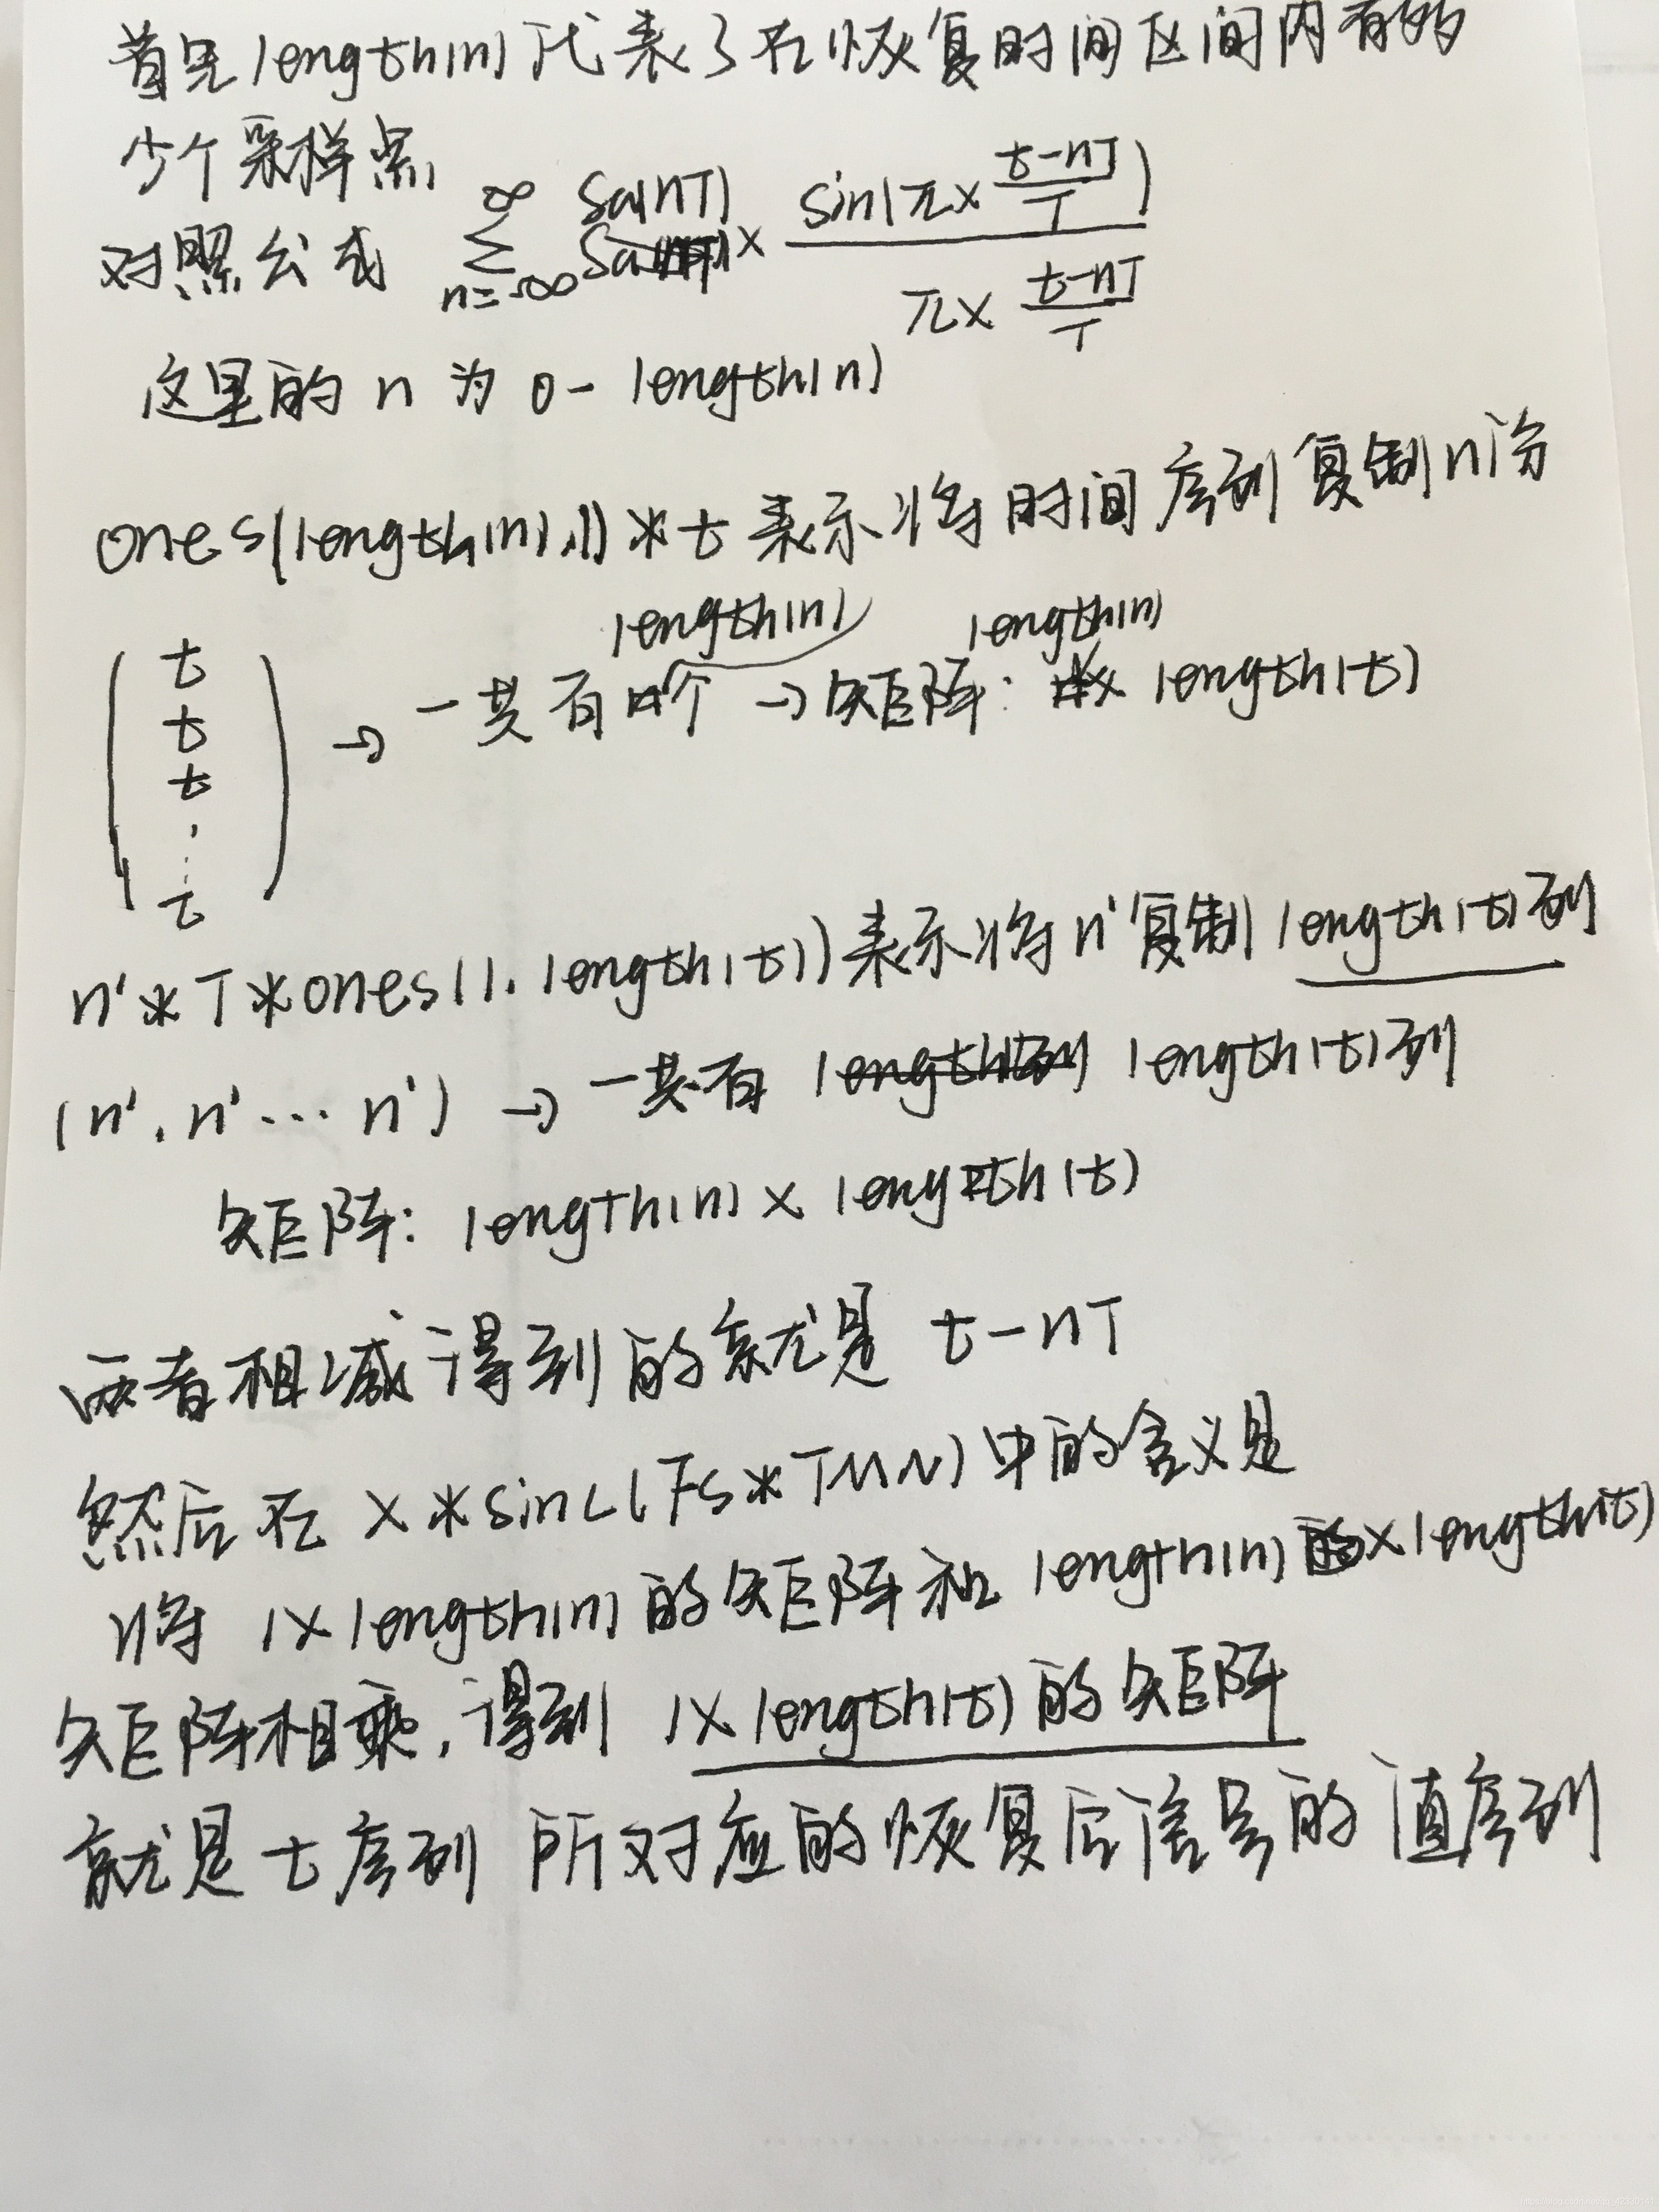 首先length(n)代表了在恢复时间区间内有多
少个采样点
对照公式 ∞ Σ n=-∞ Sa(nT) × sin(π× (t-nT)/T) / (π× (t-nT)/T)
这里的 n 为 0- length(n)
ones(length(n),1)*t 表示将时间序列复制n份
length(n) length(n)
( t t t . ⋮ t ) → 一共有 个 → 矩阵: × length(t)
n'*T*ones(1,length(t))表示将n'复制length(t)列
(n', n' ... n') → 一共有 length(t)列
矩阵: length(n) × length(t)
两者相减得到的就是 t-nT
然后在 x*sinc(Fs*TMN)中的含义是
将 1×length(n)的矩阵和 length(n)×length(t)
矩阵相乘,得到 1×length(t)的矩阵
就是t序列所对应的恢复后信号的值序列